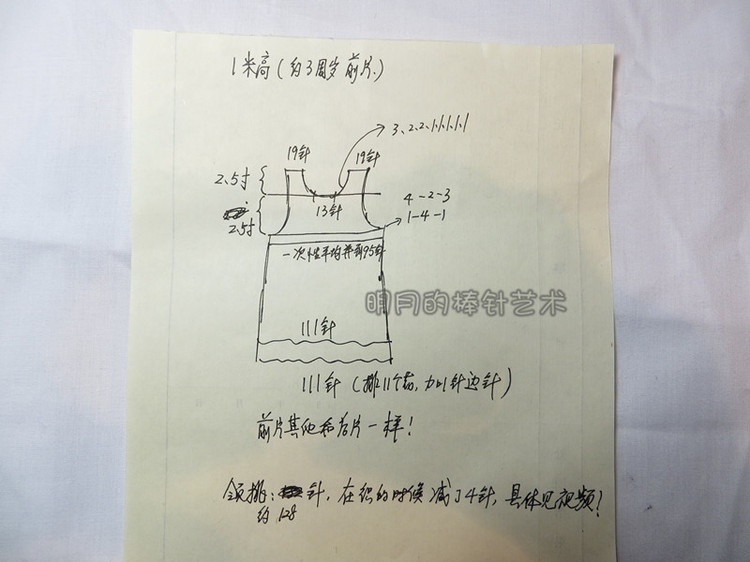 1米高(约3周岁前片.)
3、2.2、1.1.1.1.1
19针 19针
2、5寸
13针
4-2-3
1-4-1
2.5寸
一次性平均并到95针
明月的棒针艺术
111针
111针(排11个花,加1针边针)
前片其他和后片一样!
领挑: 针,在织的时候减了4针,具体见视频!
约128